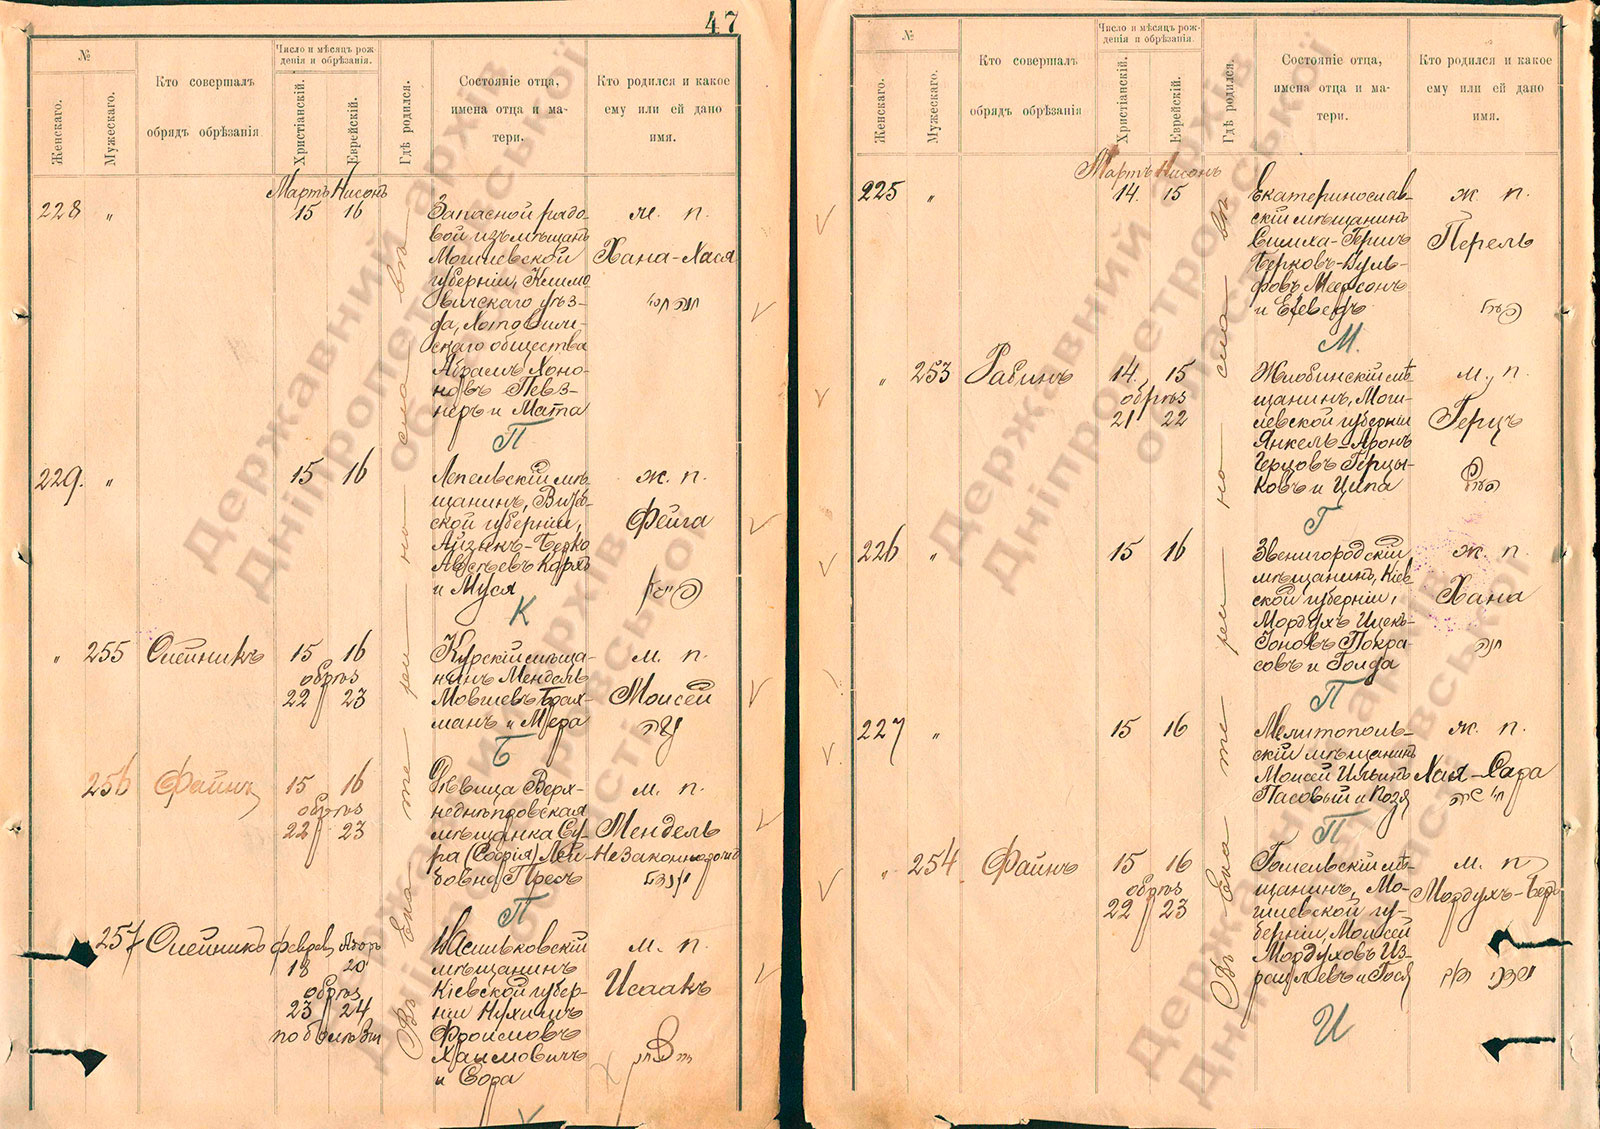 47
№
Женскаго.
Мужескаго.
Кто совершалъ
обрядъ обрѣзанія
Число и мѣсяцъ рож-
денія и обрѣзанія.
Христіанскій.
Еврейскій.
Гдѣ родился.
Состояніе отца,
имена отца и ма-
тери.
Кто родился и какое
ему или ей дано
имя.
Мартъ Нисонъ
228 " 15 16
Запасной рядо-
вой изъ мѣщанъ
Могилевской
губерніи, Климо
вичскаго уѣз-
да, Хотовиж-
скаго общества
Абрамъ Хоно-
новъ Певз-
неръ и Мата
ж. п.
Хана-Хася
П
229. " 15 16
Лепельскій мѣ-
щанинъ, Витеб-
ской губерніи,
Айзикъ-Берко
и Муся
ж. п.
Фейга
פייגא
К
" 255 Олейникъ 15 16
обрѣз
22 23
Курскій мѣща-
нинъ Мендель
Мовшевъ Брах-
манъ и Мера
м. п.
Моисей
משה
Б
256 Файнъ 15 16
обрѣз
22 23
Дѣвица Верх-
неднѣпровская
мѣщанка Су-
ра (Софія) Лей-
бовна Пресъ
м. п.
Мендель
Незаконнорожд
מענדל
П
257 Олейникъ Феврал Адаръ
18 20
обрѣз
23 24
по болѣзни
Васильковскій
мѣщанинъ
Кіевской губер-
ніи Нухимъ
Фроимовъ
Хаимовичъ
и Сора
м. п.
Исаакъ
Х
Въ Ека те ри но сла вѣ
№
Женскаго.
Мужескаго.
Кто совершалъ
обрядъ обрѣзанія
Число и мѣсяцъ рож-
денія и обрѣзанія.
Христіанскій.
Еврейскій.
Гдѣ родился.
Состояніе отца,
имена отца и ма-
тери.
Кто родился и какое
ему или ей дано
имя.
Мартъ Нисонъ
225 " 14. 15
Екатеринослав-
скій мѣщанинъ
Симха-Гершъ
Берковъ-Вуль-
фовъ Меерсонъ
и
ж. п.
Перель
פערל
М.
" 253 Рабинъ 14. 15
обрѣз
21 22
Жлобинскій мѣ
щанинъ, Моги-
левской губерніи
Янкель-Аронъ
Герцовъ Герцы-
ковъ и Ципа
м. п.
Герцъ
Г
226 " 15 16
Звенигородскій
мѣщанинъ, Кіев
ской губерніи,
Мордухъ Ицек-
Зоновъ Покра-
совъ и Голда
ж. п.
Хана
חנה
П
227 " 15 16
Мелитополь-
скій мѣщанинъ
Моисей Илькинъ
Пасовый и Розя
ж. п.
Хая-Сара
חי׳ שרה
П
" 254 Файнъ 15 16
обрѣз
22 23
Гомельскій мѣ-
щанинъ, Мо-
гилевской гу-
берніи, Моисей
Мордуховъ Из-
раилевъ и Гося
м. п.
Мордухъ-Беръ
И
Въ Ека те ри но сла вѣ
Державний архів
Дніпропетровської
області